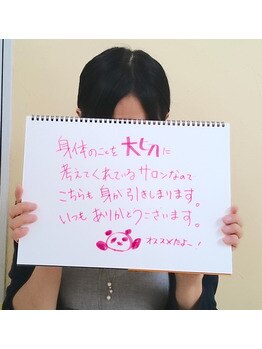 身体のことを大切に
考えてくれているサロンなので
こちらも身が引きしまります。
いつもありがとうございます。
オススメだよ〜！